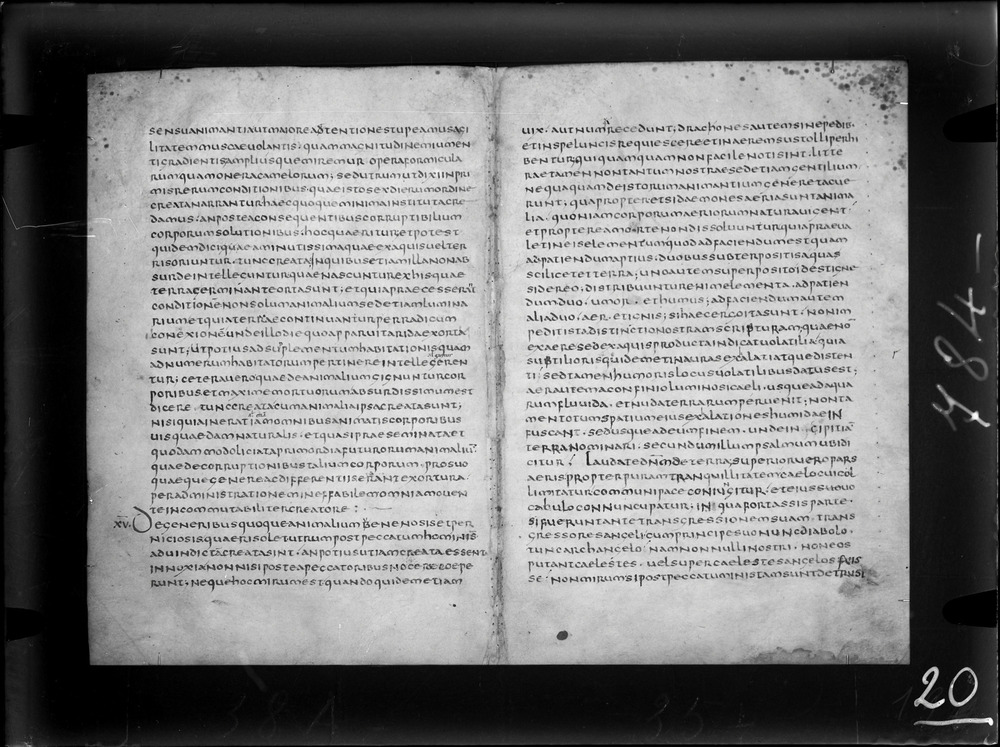 sensuanimantiautmaioreadtentionestupeamusagi
litatemmuscaeuolantis. quammagnitudineiumen
tigradientisampliusquemiremur operaformicula
rumquamoneracamelorum; sedutrumutdixiinpri
misrerumconditionibus quaeistosexdierumordine
creatanarranturhaecquoqueminimainstitutacre
damus: anposteaconsequentibuscorruptibilium
corporumsolutionibus; hocquaeritur; etpotest
quidemdiciquaeaminutissimaquaeexaquisuelter
risoriuntur. tunccreatainquibusetiamillanonab
surdeintelleguntur quaenascunturexhisquae
terragerminanteortasunt; etquiapraecesserūt
conditionēnonsolumanimaliumsedetiamlumina
riumetquiaterraecontinuanturperradicum
conexionēundeillodiequoapparuitaridaexorta
sunt; utpotiusadsuplementumhabitationisquam
adnumerumhabitatorumpertinereintellegeren
tur; ceterauero quaedeanimaliumgignunturcor
poribus. etmaximemortuorumabsurdissimumest
dicere. tunccreatacumanimaliaipsacreatasunt;
nisiquiainerat iamomnibusanimatiscorporibus
uisquaedamnaturalis. etquasipraeseminataet
quodammodoliciataprimordiafuturorumanimaliū
quaedecorruptionibustaliumcorporum. prosuo
quaequegenereacdifferentiserantexortura.
peradministrationemineffabilemomniamouen
teincommutabilitercreatore:
xv. Degeneribusquoqueanimalium uenenosisetper
niciosisquaerisoletutrumpostpeccatumhominis
aduindictācreatasint. anpotiusutiamcreataessent
innoxianonnisiposteapeccatoribusnocerecoepe
runt; nequehocmirumestquandoquidemetiam
uix. autnumrecedunt; drachonesautemsinepedib.
etinspeluncisrequiescereetinaeremsustolliperhi
benturquiquamquamnonfacilenotisint. litte
raetamennontantumnostraesedetiamgentilium
nequaquamdeistorumanimantiumgeneretacue
runt; quapropteretsidaemonesaeriasuntanima
lia. quoniamcorporumaeriorumnaturauigent
etpropterea mortenondissoluuntur quiapraeua
letineiselementumquodadfaciendumestquam
adpatiendumaptius; duobussubterpositisaquas
scilicetetterra; unoautemsuperpositoidestigne
sidereo; distribuunturenimelementa. adpatien
dumduo. umor. ethumus; adfaciendumautem
aliaduo. aer. etignis; sihaecergoitasunt. nonim
peditistadistinctionostramscripturam; quaenō
exaeresedexaquisproductaindicatuolatilia quia
subtilioris quidemetinaurasexalatiatquedisten
ti. sedtamenhumorislocusuolatilibusdatusest;
aerautemaconfinioluminosicaeli. usqueadaqua
rumfluuida. etnudaterrarumperuenit; nonta
mentotumspatiumeiusexalationeshumidaein
fuscant. sedusqueadeumfinem. undeincipitiā
terranominari. secundumillumpsalmumubidi
citur; Laudatednmdeterra; superioruero pars
aerispropterpuramtranquillitatemcaelocuicol
limitaturcommunipaceconiungitur. eteiusuuo
cabulo connuncupatur. inquafortassisparte.
sifueruntantetransgressionemsuam. trans
gressoresangeli; cumprincipesuonuncdiabolo.
tuncarchangelo. namnonnullinostri. noneos
putantcaelestes. uelsupercaelestesangelos fuis
se: nonmirumsipostpeccatumistamsuntdetrusi
784
20